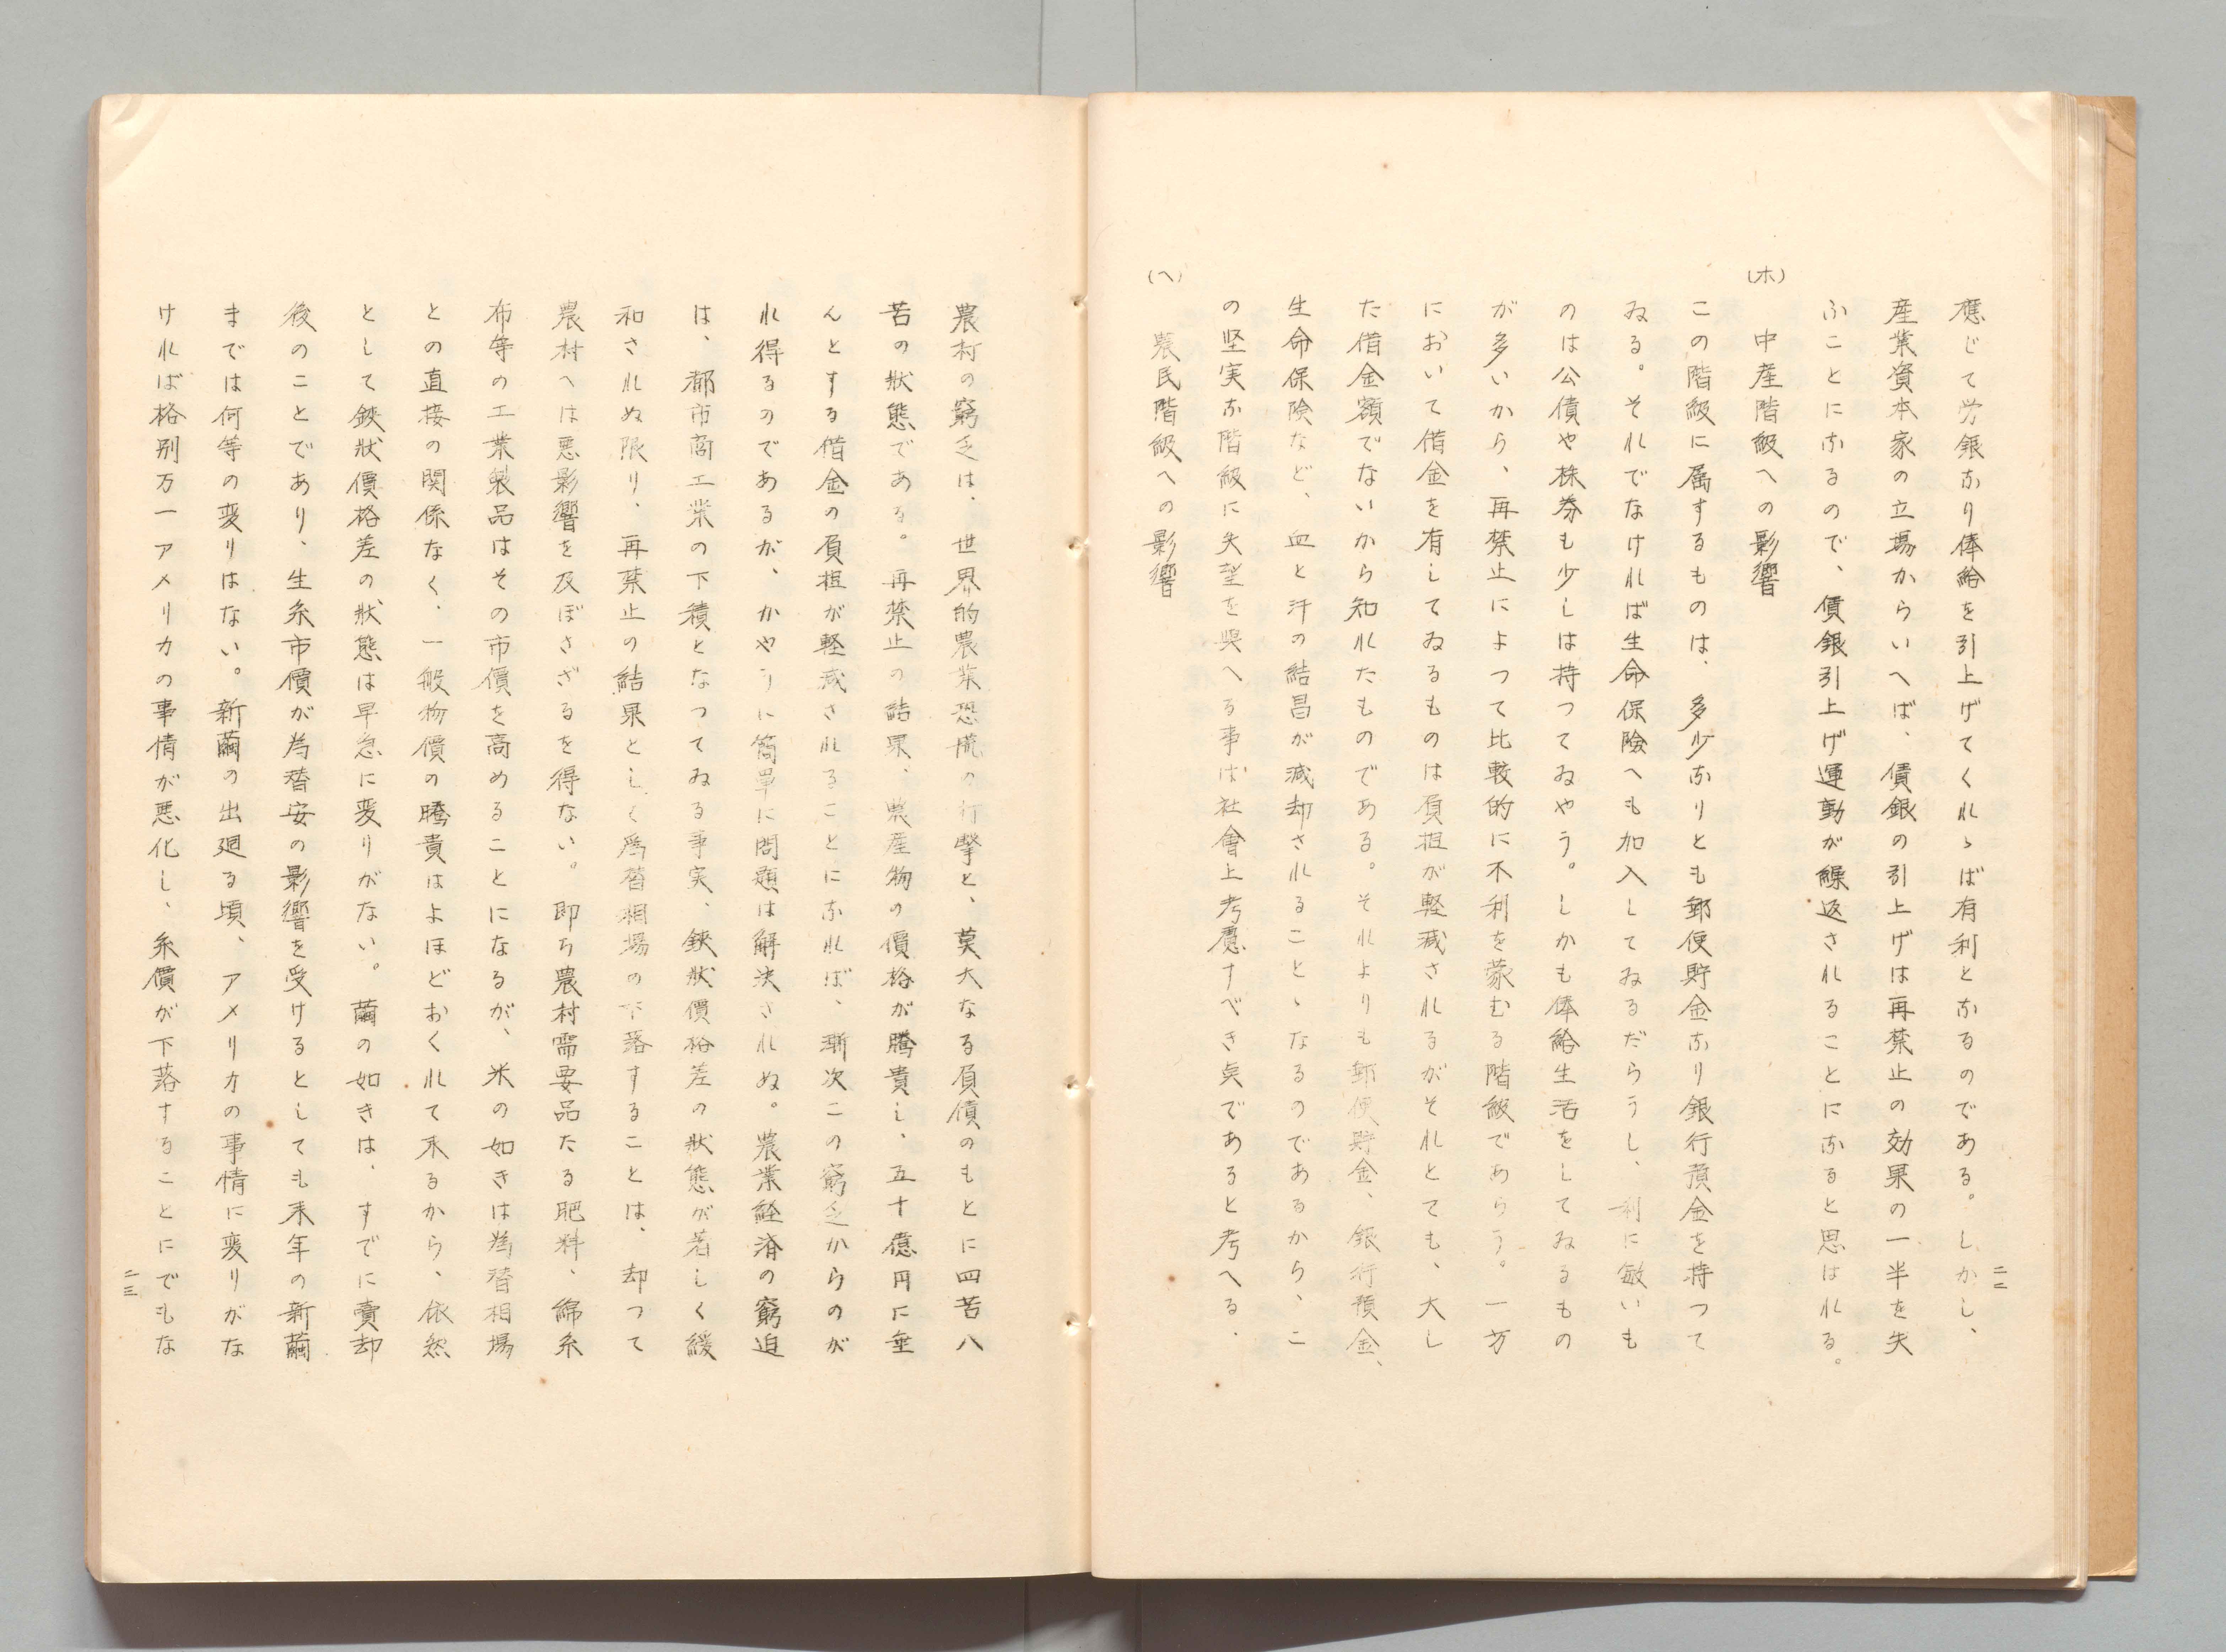 應じて労銀なり俸給を引上げてくれゝば有利となるのである。しかし、
産業資本家の立場からいへば、賃銀の引上げは再禁止の効果の一半を失
ふことになるので、賃銀引上げ運動が繰返されることになると思はれる。
(ホ)
中産階級への影響
この階級に属するものは、多少なりとも郵便貯金なり銀行預金を持つて
ゐる。それでなければ生命保險へも加入してゐるだらうし、利に敏いも
のは公債や株券も少しは持つてゐやう。しかも俸給生活をしてゐるもの
が多いから、再禁止によつて比較的に不利を蒙むる階級であらう。一方
において借金を有してゐるものは負担が軽減されるがそれとても、大し
た借金額でないから知れたものである。それよりも郵便貯金、銀行預金、
生命保険など、血と汗の結晶が減却されることゝなるのであるから、こ
の堅実な階級に失望を與へる事は社會上考慮すべき点であると考へる.
(ヘ)
農民階級への影響
二二
農村の窮乏は、世界的農業恐慌の打擊と、莫大なる負債のもとに四苦八
苦の狀態である。再禁止の結果、農産物の價格が騰貴し、五十億円に垂
んとする借金の負担が軽減されることになれば、漸次この窮乏からのが
れ得るのであるが、かやうに簡單に問題は解決されぬ。農業経済の窮迫
は、都市商工業の下積となつてゐる事実、鋏狀價格差の狀態が若しく緩
和されぬ限り、再禁止の結果として為替相場の下落することは、却つて
農村へは悪影響を及ぼさざるを得ない。即ち農村需要品たる肥料、綿糸
布等の工業製品はその市價を高めることになるが、米の如きは為替相場
との直接の関係なく、一般物價の騰貴はよほどおくれて来るから、依然
として鋏狀價格差の狀態は早急に変りがない。繭の如きは、すでに賣却
後のことであり、生糸市價が為替安の影響を受けるとしても来年の新繭
までは何等の変りはない。新繭の出廻る頃、アメリカの事情に変りがな
ければ格別万一アメリカの事情が悪化し、糸價が下落することにでもな
二三